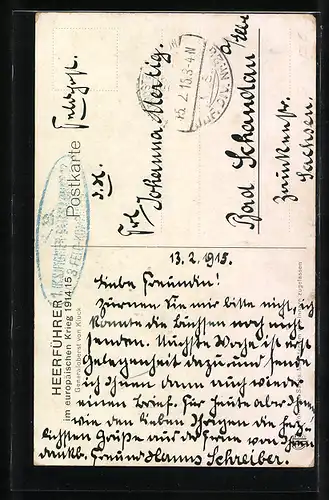 Feldpost.
Postkarte
Frl. Johanna Hertig.
Bad Schandau a/Elbe
Zaukenstr.
Sachsen
15.2.15.3-4N
HEERFÜHRER
im europäischen Krieg 1914.15
Generaloberst von Kluck
13.2.1915.
Liebe Freundin!
Zürnen Sie mir bitte nicht, ich
konnte die Büchsen noch nicht
senden. Nächste Woche ist erst
Gelegenheit dazu und sende
ich Ihnen dann auch wieder
einen Brief. Für heute aber Ihnen
wie den lieben Ihrigen die herz-
lichsten Grüße aus der Ferne von Ihrem
dankb. Freund Hanns Schreiber.